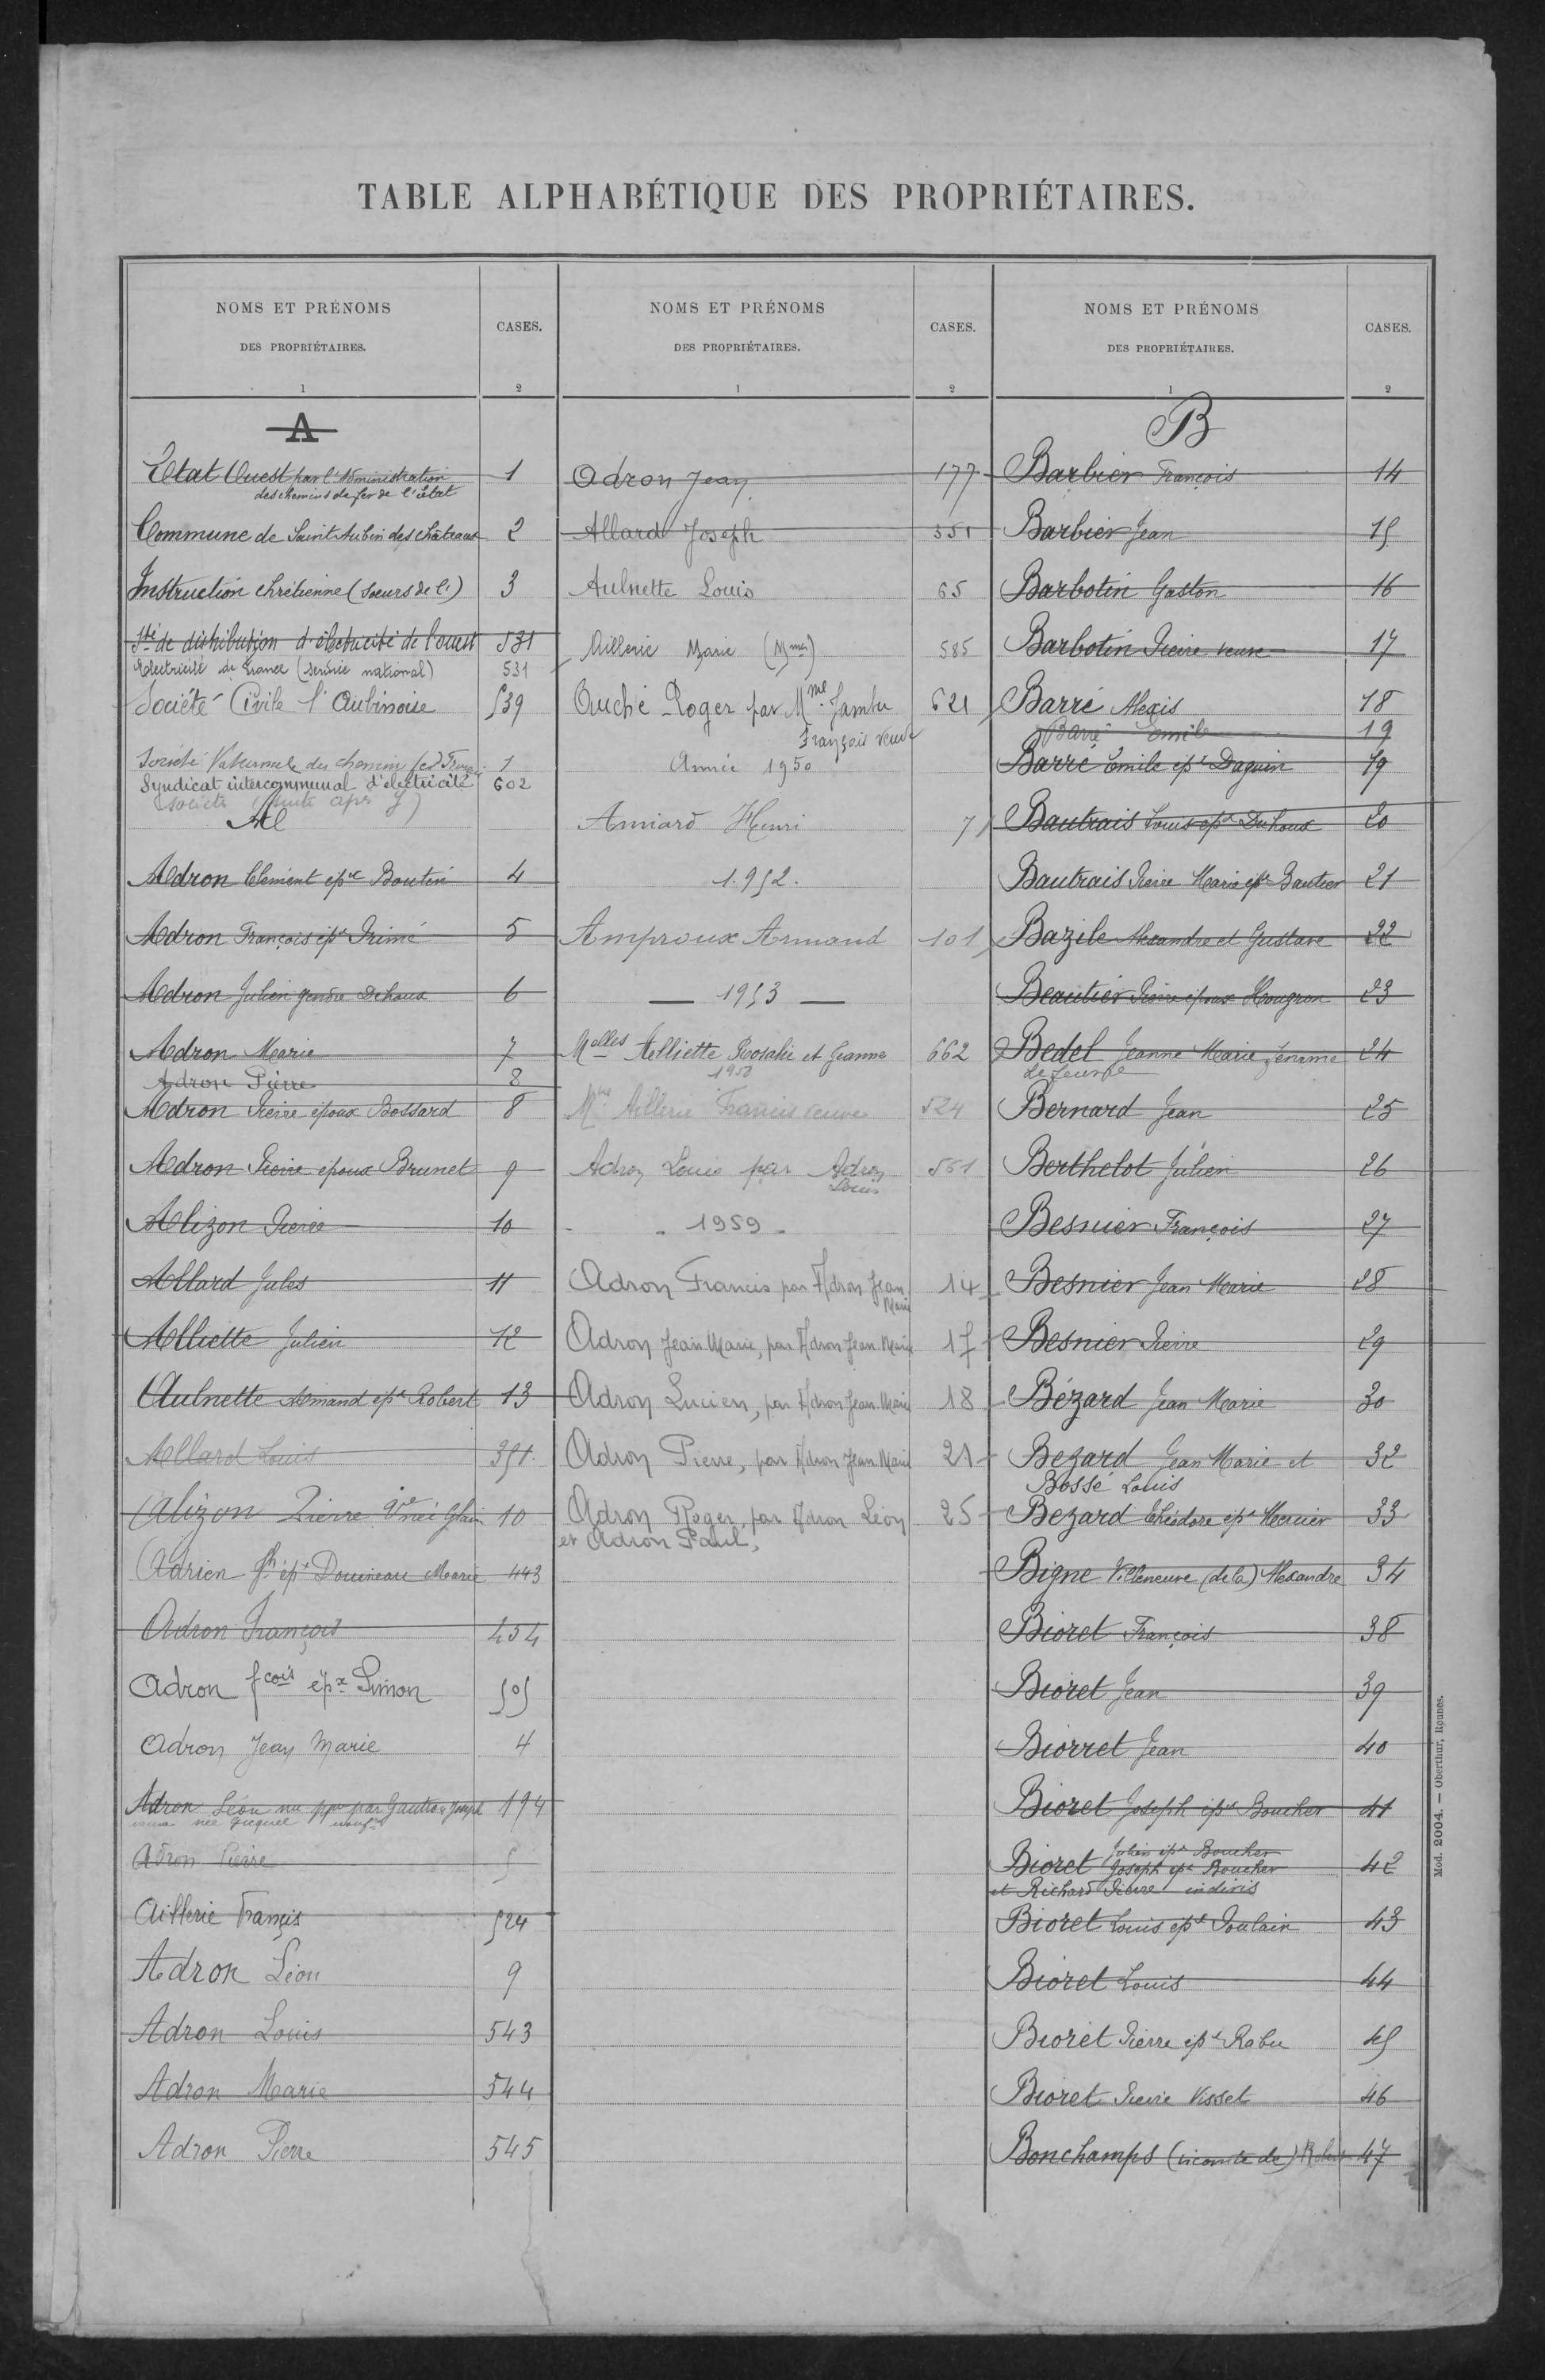 TABLE ALPHABÉTIQUE DES PROPRIÉTAIRES.
NOMS ET PRÉNOMS
DES PROPRIÉTAIRES.
CASES.
1
2
A
Etat Ouest par l'Administration 1
des chemins de fer de l'état
Commune de Saint Aubin des Châteaux 2
Instruction chrétienne (Soeurs de l') 3
Sté de distribution d'électricité de l'ouest 531
Electricité de France (service national) 531
Société Civile l'Aubinoise 539
Société Nationale des chemins fer 1
Syndicat intercommunal d'électricité 602
Société (suite après J)
A
Adron Clément epx Boutin 4
Adron François epx Primé 5
Adron Julien gendre Dehoux 6
Adron Marie 7
Adron Pierre 8
Adron Pierre époux Bossard 8
Adron Pierre époux Brunet 9
Alizon Pierre 10
Allard Jules 11
Alliette Julien 12
Aulnette Armand epx Robert 13
Allard Louis 351
Alizon Pierre Vve née Glain 10
Adrien epx Douineau Marie 443
Adron François 454
Adron fcois epx Simon 505
Adron Jean Marie 4
Adron Léon nu ppre par Gautron Joseph 194
née Jicquel
Adron Pierre 5
Aillerie Francis 524
Adron Léon 9
Adron Louis 543
Adron Marie 544
Adron Pierre 545
NOMS ET PRÉNOMS
DES PROPRIÉTAIRES.
CASES.
1
2
Adron Jean 177
Allard Joseph 351
Aulnette Louis 65
Aillerie Marie (Mme) 585
Auché Roger par Mme Jambu 621
François veuve
Année 1950
Amiard Henri 7
1.952.
Amproux Armand 101
— 1953 —
Melles Alliette Rosalie et Jeanne 662
1958
Mme Aillerie Francis veuve 524
Adron Louis par Adron 561
Louis
- 1959 -
Adron Francis par Adron Jean 14
Marie
Adron Jean Marie, par Adron Jean Marie 17
Adron Lucien, par Adron Jean Marie 18
Adron Pierre, par Adron Jean Marie 21
Adron Roger, par Adron Léon 25
et Adron Paul,
NOMS ET PRÉNOMS
DES PROPRIÉTAIRES.
CASES.
1
2
B
Barbier François 14
Barbier Jean 15
Barbotin Gaston 16
Barbotin Pierre veuve 17
Barré Alexis 18
Barré Emile 19
Barré Emile epx Daguin 19
Bautrais Louis epx Duhoux 20
Bautrais Pierre Marie epx Gautier 21
Bazile Alexandre et Gustave 22
Beautier Pierre époux Hougron 23
Bedel Jeanne Marie femme 24
Bernard Jean 25
Berthelot Julien 26
Besnier François 27
Besnier Jean Marie 28
Besnier Pierre 29
Bézard Jean Marie 30
Bezard Jean Marie et 32
Bossé Louis
Bezard Théodore epx Mercier 33
Bigne Villeneuve (de la) Alexandre 34
Bioret François 38
Bioret Jean 39
Biorret Jean 40
Bioret Joseph epx Boucher 41
Julien epx Boucher
Bioret Joseph epx Boucher 42
et Richard Pierre indivis
Bioret Louis epx Poulain 43
Bioret Louis 44
Bioret Pierre epx Rabu 45
Bioret Pierre Visset 46
Bonchamps (vicomte de) 47
Mod. 2004. — Oberthur, Rennes.